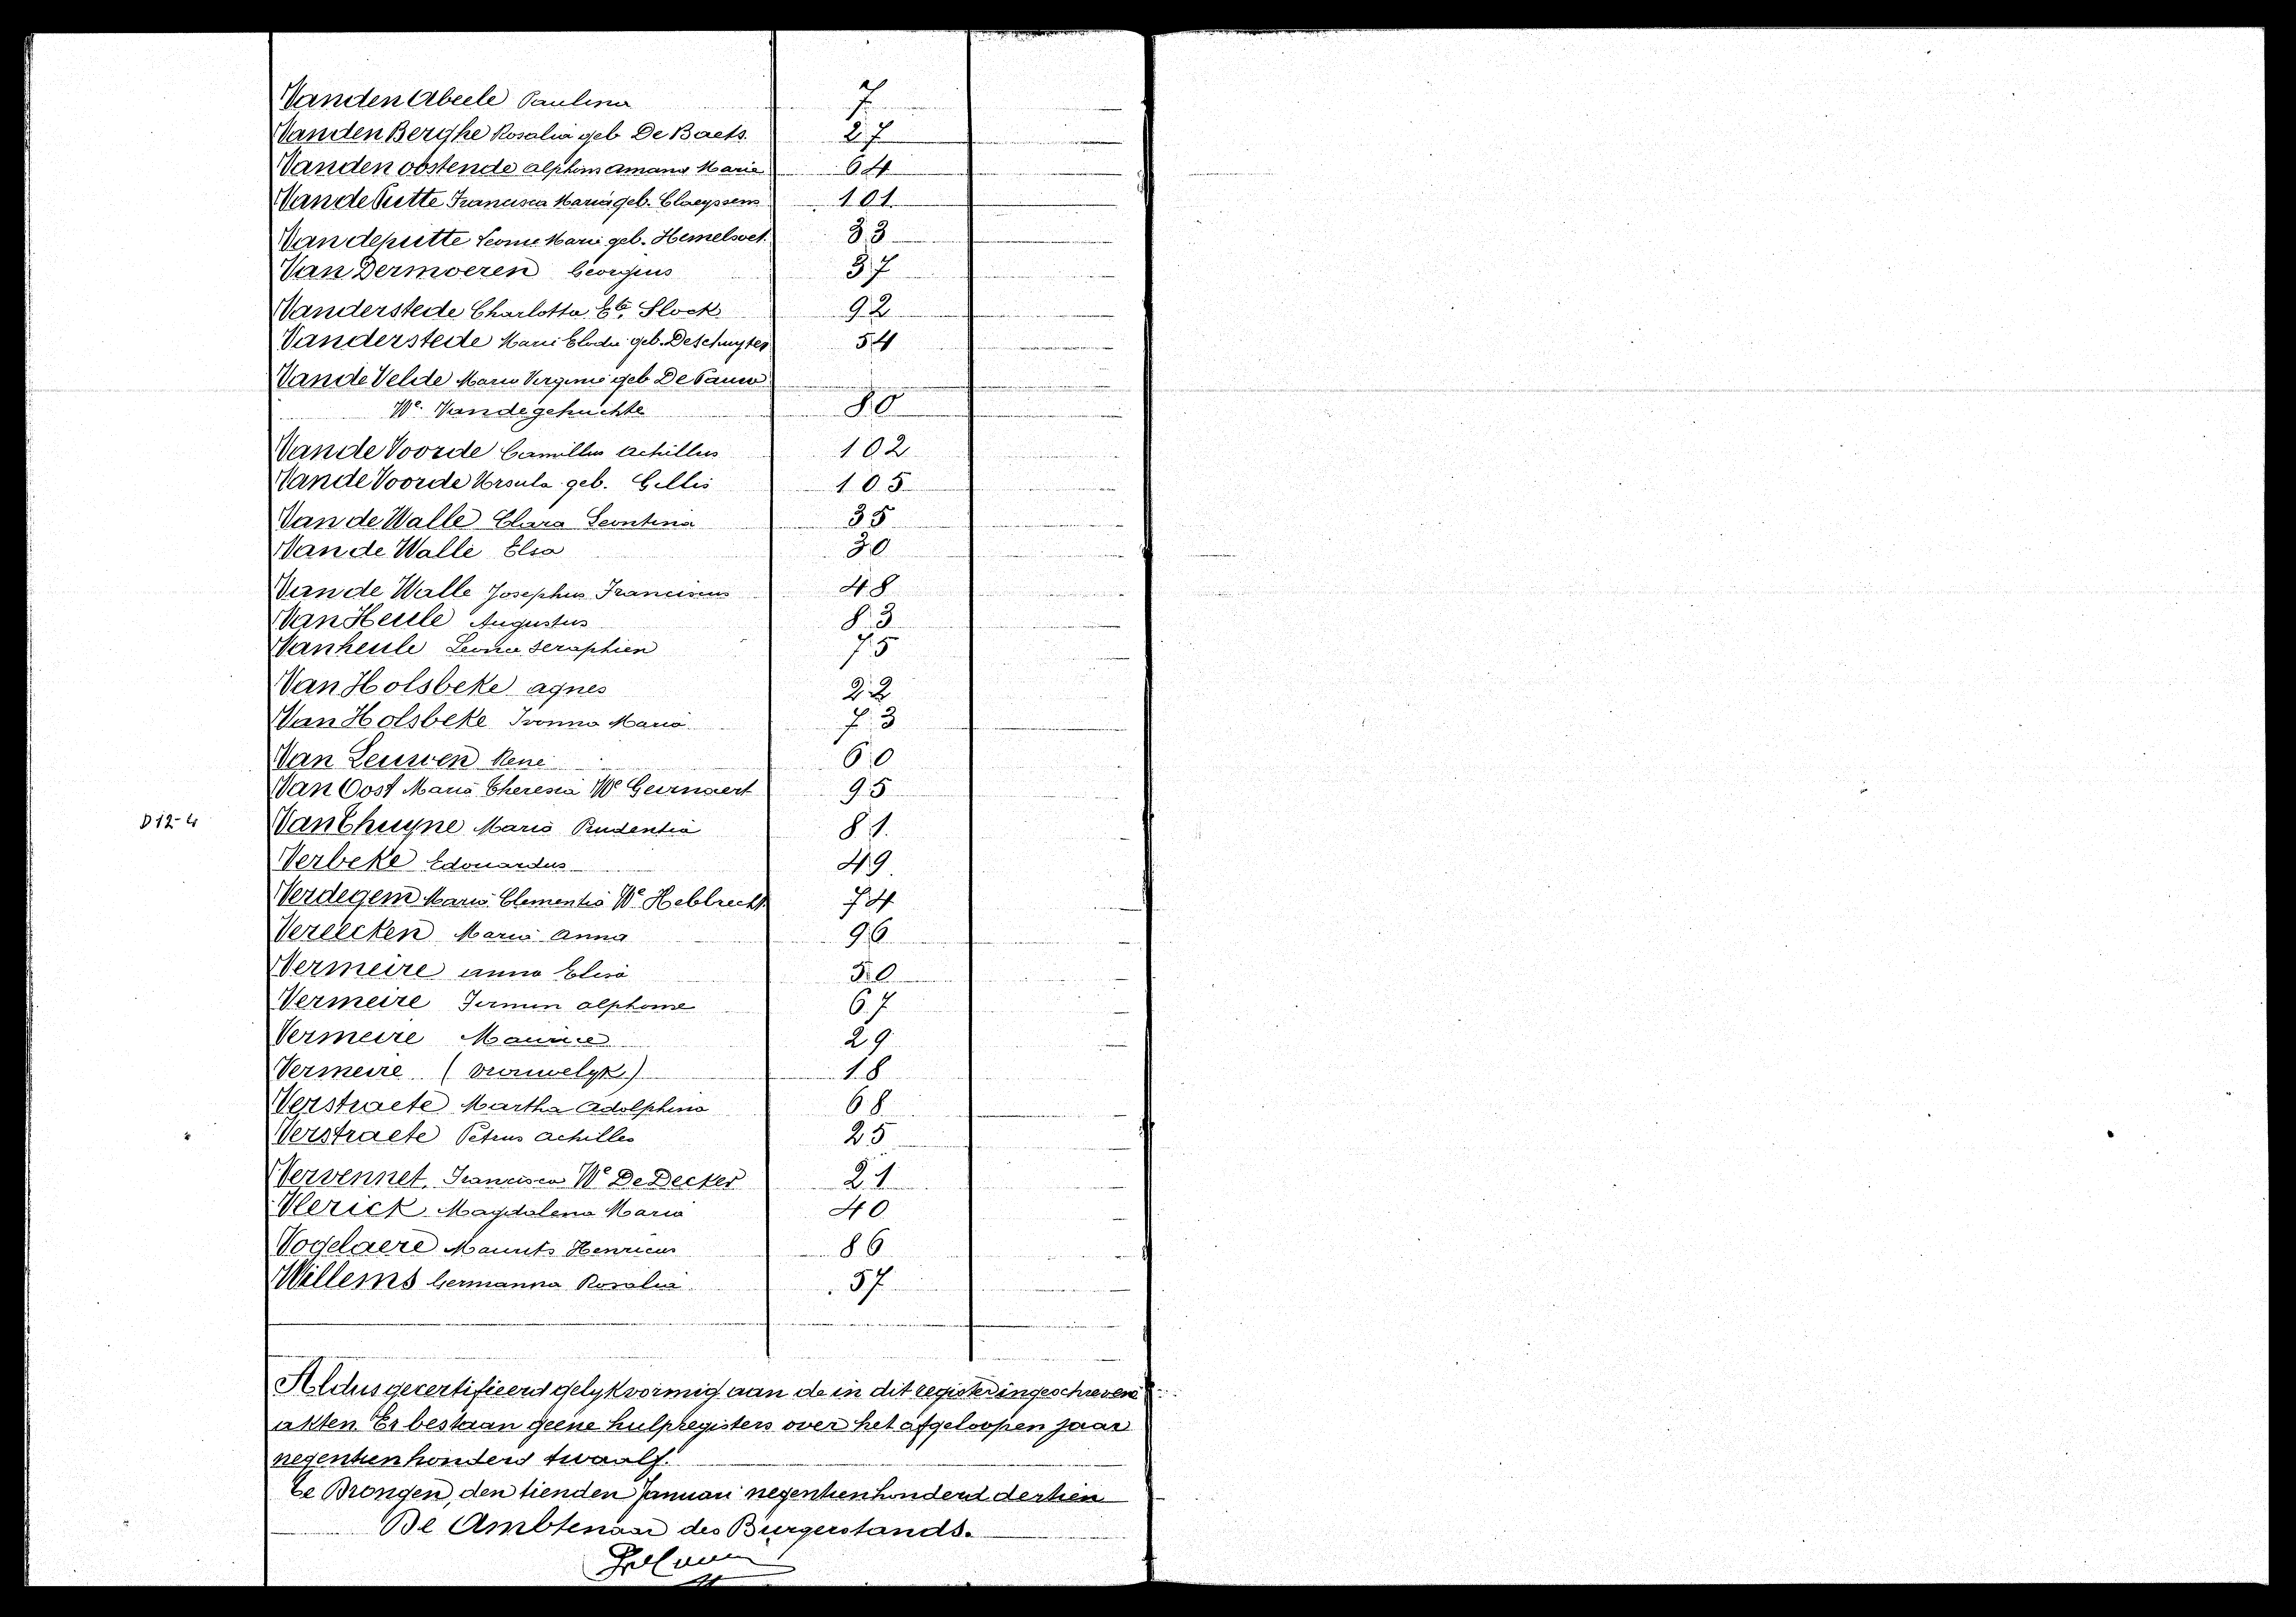 Vanden Abeele Paulina 7
Vanden Berghe Rosalia geb De Baets. 27
Vanden oostende alphons amand Marie 64
Van de Putte Francisca Maria geb. Claeyssens 101
Van de putte Leonie Marie geb. Hemelsoet 33
Van Dermoeren Georgius 37
Vanderstede Charlotta Slock 92
Vanderstede Marie Elodie geb. Deschuyter 54
Van de Velde Maria Virginie geb De Pauw
We. Vandegehuchte 80
Van de Voorde Camillus Achillus 102
Van de Voorde Ursula geb. Gillis 105
Van de Walle Clara Leontina 35
Van de Walle Elsa 30
Van de Walle Josephus Franciscus 48
Van Heule Augustus 83
Vanheule Leonie Seraphien 75
Van Holsbeke agnes 22
Van Holsbeke Ivonna Maria 73
Van Leuwen René 60
Van Oost Maria Theresia We Geirnaert 95
D 12-4 Van Thuyne Maria Prudentia 81.
Verbeke Edouardus 49.
Verdegem Maria Clementia We Hebbrecht 74
Vereecken Maria Anna 96
Vermeire anna Elisa 50
Vermeire Firmin alphonse 67
Vermeire Maurice 29
Vermeire (vrouwelyk) 18
Verstraete Martha Adolphina 68
Verstraete Petrus achilles 25
Vervennet Francisca We De Decker 21
Vlerick Magdalena Maria 40
Vogelaere Maurits Henricus 86
Willems Germanna Rosalia 57
Aldus gecertifieerd gelykvormig aan de in dit register ingeschrevene
akten. Er bestaan geene hulpregisters over het afgeloopen jaar
negentienhonderd twaalf.
te Drongen, den tienden Januari negentienhonderd dertien
De Ambtenaar des Burgerstands.